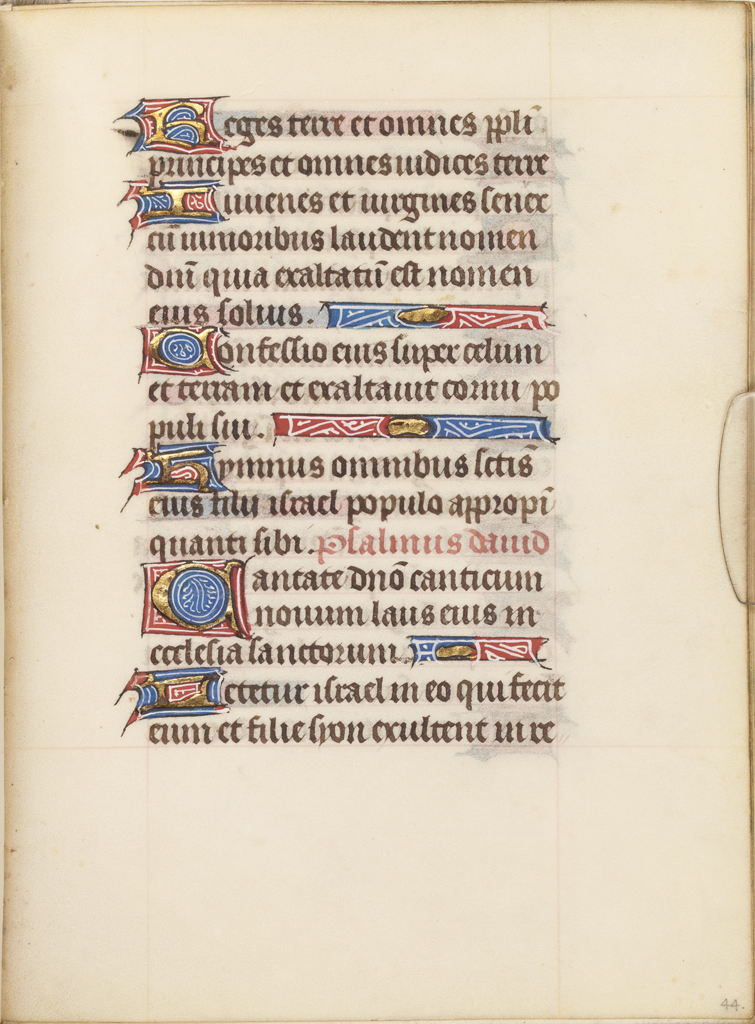 Reges terre et omnes ppl̄i
principes et omnes iudices terre
Iuuenes et uirgines senex
cū iunioribus laudent nomen
dnī quia exaltatū est nomen
eius solius.
Confessio eius super celum
et terram et exaltauit cornu po
puli sui.
Hymnus omnibus sctīs
eius filiis israel populo appropī
quanti sibi. psalmus dauid
Cantate dnō canticum
nouum laus eius in
ecclesia sanctorum.
Letetur israel in eo qui fecit
eum et filie syon exultent in re
44.